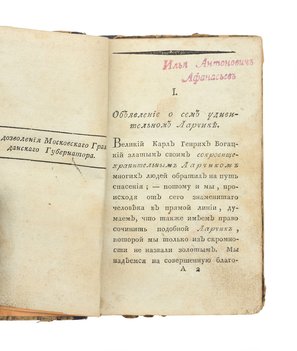 дозволенія Московскаго Граж
данскаго Губернатора.
Илья Антоновичъ
Афанасьевъ
I.
Объявленіе о семъ удиви-
тельномъ Ларчикѣ.
Великій Карлъ Генрихъ Богац-
кій златымъ своимъ сокровище-
хранительнымъ Ларчикомъ
многихъ людей обратилъ на путь
спасенія; — потому и мы, проис-
ходя отъ сего знаменитаго
человѣка въ прямой линіи, ду-
маемъ, что также имѣемъ право
сочинить подобной Ларчикъ,
которой мы только изъ скромно-
сти не назвали золотымъ. Мы
надѣемся на совершенную благо-
А 2